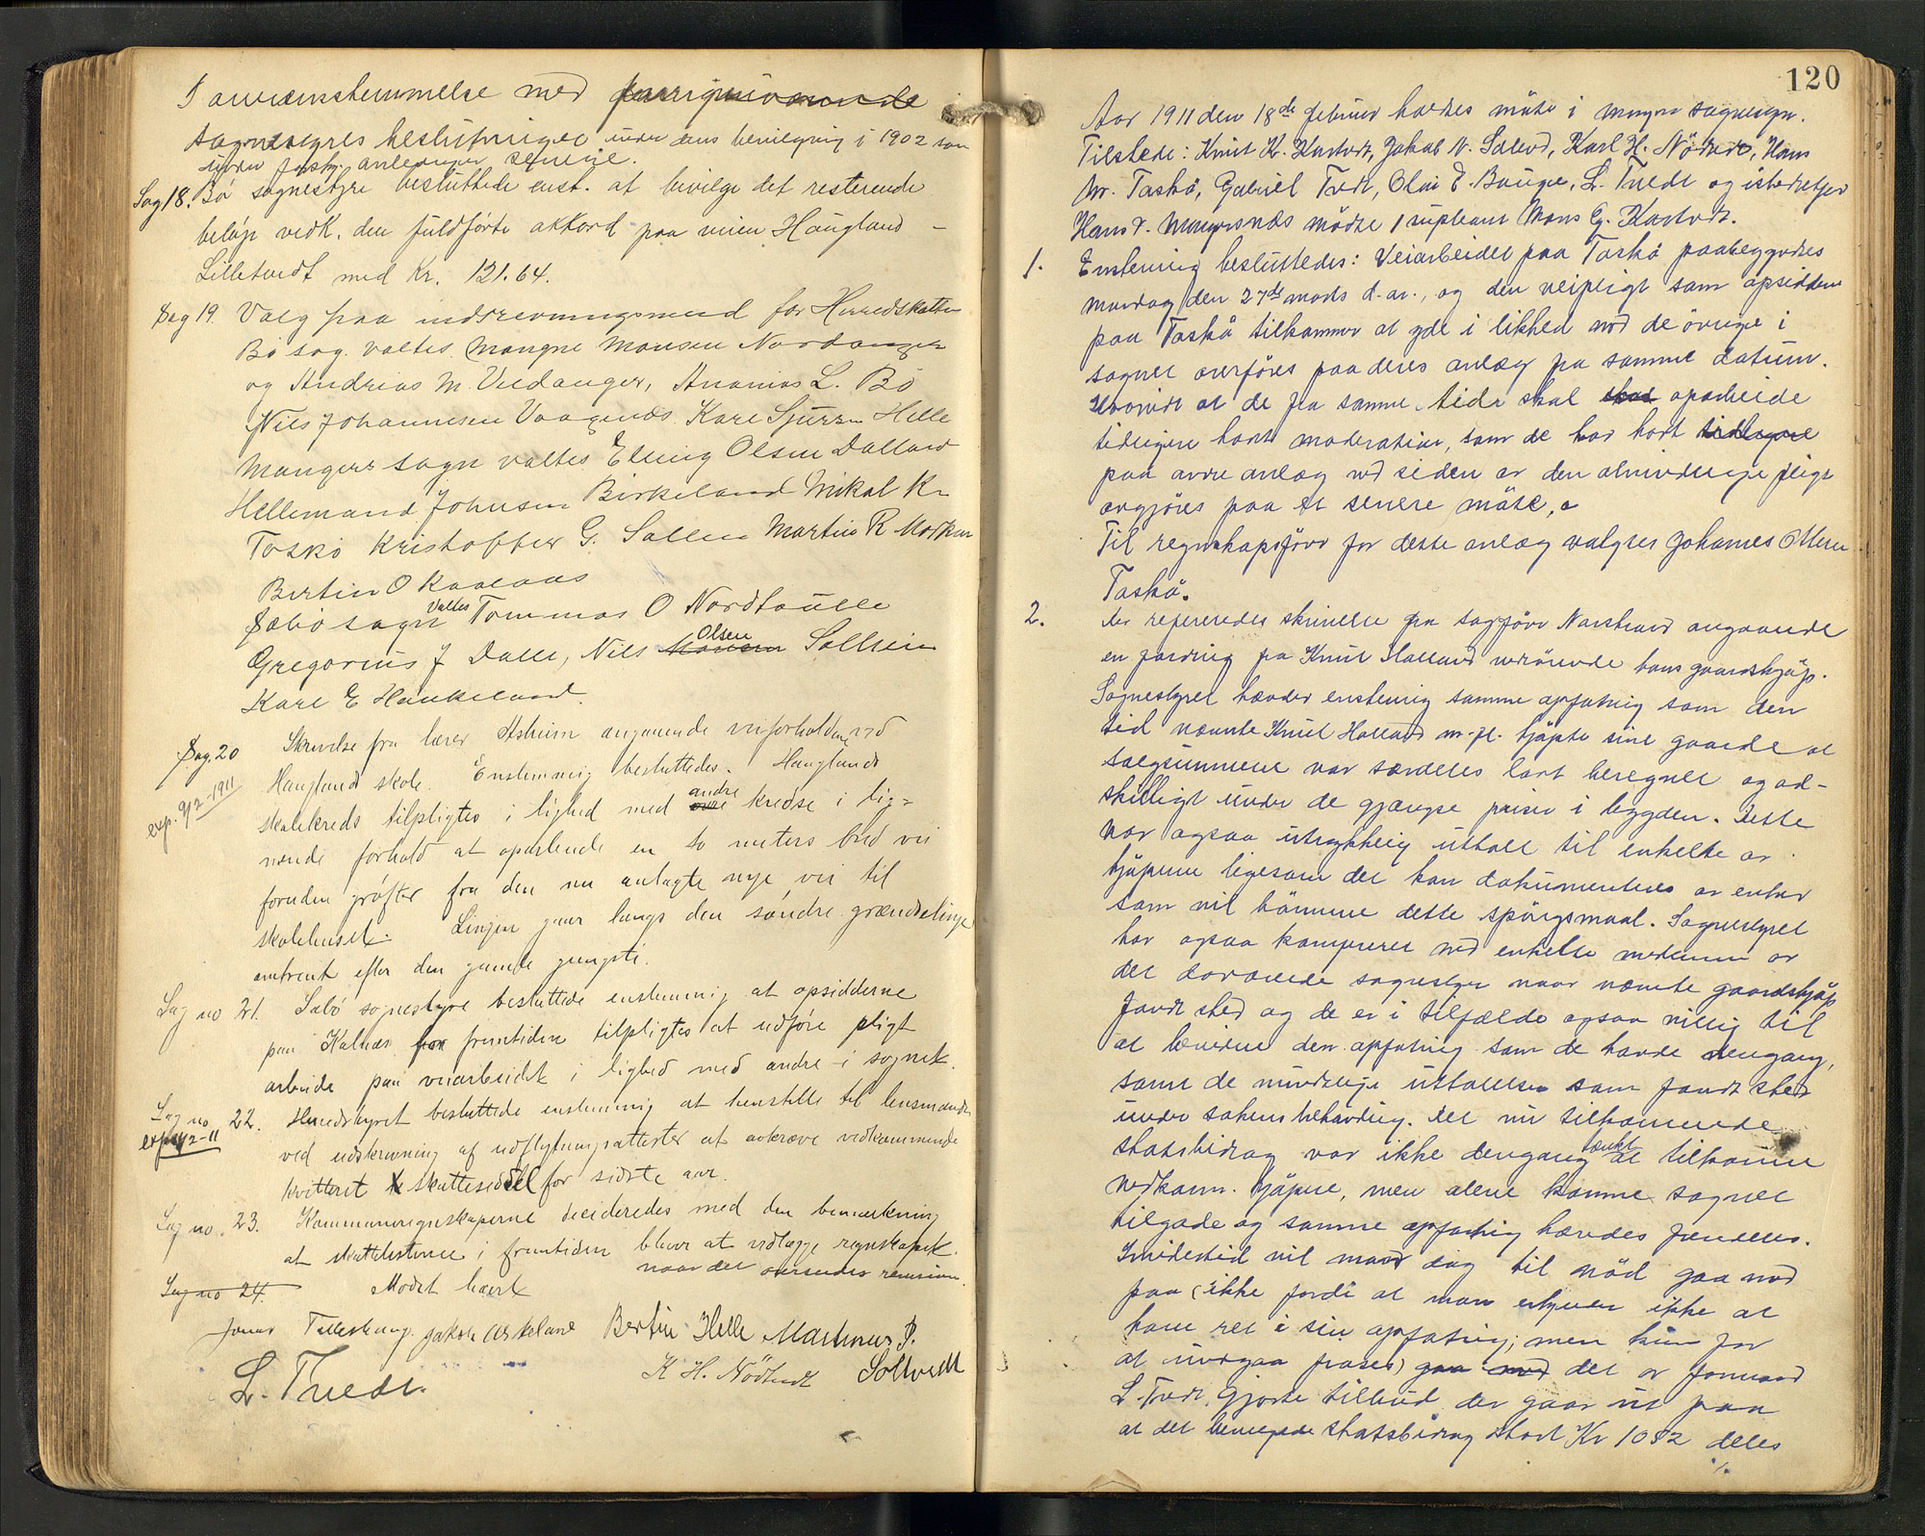 I overensstemmelse med
sognestyres beslutninger under dens bevilgning i 1902 som
anledninger senere.
Sag 18. Bø sognestyre besluttede enst. at bevilge det resterende
beløp vedk. den fuldførte akkord paa veien Haugland –
Lilletvedt med Kr. 121.64.
Sag 19. Valg paa inddrevningsmænd for Herredskatten
Bø sog. valtes Mangne Monsen Nordanger
og Andreas M. Vedanger, Ananias L. Bø
Nils Johannesen Vaagenes Kare Sjursen Helle
Mangers sogn valtes Elling Olsen Dalland
Hellemand Johnsen Birkeland Mikal K.
Toskø Kristoffer G. Sallen Martin R.
Bertin O
Sæbø sogn valtes Tommas O Nordtoulle
Gregorius J Dalle, Nils Olsen Sollsein
Kare E Haukeland.
Sag. 20 Skrivelse fra lærer Askeim angaaende veiforholdene ved
Haugland skole. Enstemmig besluttedes. Hauglands
exp. 9/2-1911
skolekreds tilpligtes i lighed med andre kredse i lig-
nende forhold at oparbeide en to meters bred vei
foruden grøfter fra den nu anlagte nye vei til
skolehuset. Linjen gaar langs den søndre grændselinje
omtrent efter den gamle gangsti.
Sag no 21. Sæbø sognestyre besluttede enstemmig at opsidderne
paa Kalnæs for fremtiden tilpligtes at udføre pligt
arbeide paa veiarbeidet i lighed med andre i sognet.
Sag no 22. Herredstyret besluttede enstemmig at henstille til lensmanden
ved udskrivning af udflytningsattester at avkræve vedkommende
kvitteret skatteseddel for sidste aar.
Sag no. 23. Kommuneregnskaperne decideredes med den bemerkning
at skattelisterne i fremtiden blever at vedlægge regnskapet
naar det oversendes revisionen.
Sag no 24. Mødet hævet
Jakob Askeland Bertin Helle Martinus P.
K H. Nødtvedt Soltvedt
L. Tvedt.
120
Aar 1911 den 18de februar holdtes møte i Manger sognestyre.
Tilstede: Knut K. Kartvedt, Jakob N. Sætved, Karl H. Nødtvedt, Hans
M. Toskø, Gabriel Tvedt, Olai E. Bauge, L. Tvedt og istedetfor
Hans T. Mangersnæs mødte 1 supleant Mons G. Kartvedt.
1. Enstemmig besluttedes: Veiarbeidet paa Toskø paabegyndtes
mandag den 27de marts d. aar, og den veipligt som opsiddere
paa Toskø tilkommer at yde i likhed med de øvrige i
sognet overføres paa deres anlæg fra samme datum.
Hvorvidt at de fra samme tid skal oparbeide
tidligere havt moderation, som de har havt tidligere
paa andre anlæg ved siden av den almindelige pligt
avgjøres paa et senere møte.
Til regnskapsfører for dette anlæg valgtes Johannes Olsen
Toskø.
2. Der refereredes skrivelse fra sagfører Narstrand angaaende
en fordring fra Knut Halland vedrørende hans gaardskjøp.
Sognestyret hævder enstemmig samme opfatning som den
tid nævnte Knut Halland m. fl. kjøpte sine gaarde at
salgsummene var særdeles lavt beregnet og ad-
skilligt under de gjængse priser i bygden. Dette
var ogsaa utrykkelig uttalt til enkelte av
kjøperne ligesom det kan dokumenteres av enhver
som vil kjenne dette spørgsmaal. Sognestyret
har ogsaa konfereret med enkelte medlemmer av
det daværende sognestyre naar nævnte gaardskjøp
fandt sted og de er i tilfælde ogsaa villig til
at bevidne den opfatning som de havde dengang,
samt de mundtlige uttalelser som fandt sted
under sakens behandling. Det nu tilkommende
statsbidrag var ikke dengang tænkt at tilkomme
vedkom. kjøpere, men alene komme sognet
tilgode og samme opfatning hævdes fremdeles.
Imidlertid vil man dog til nød gaa med
paa (ikke fordi at man erkjender ikke at
have ret i sin opfatning; men kun for
at undgaa proses) gaa med det av formand
L. Tvedt. gjorte tilbud der gaar ut paa
at det bevilgede statsbidrag stort Kr 1052 deles